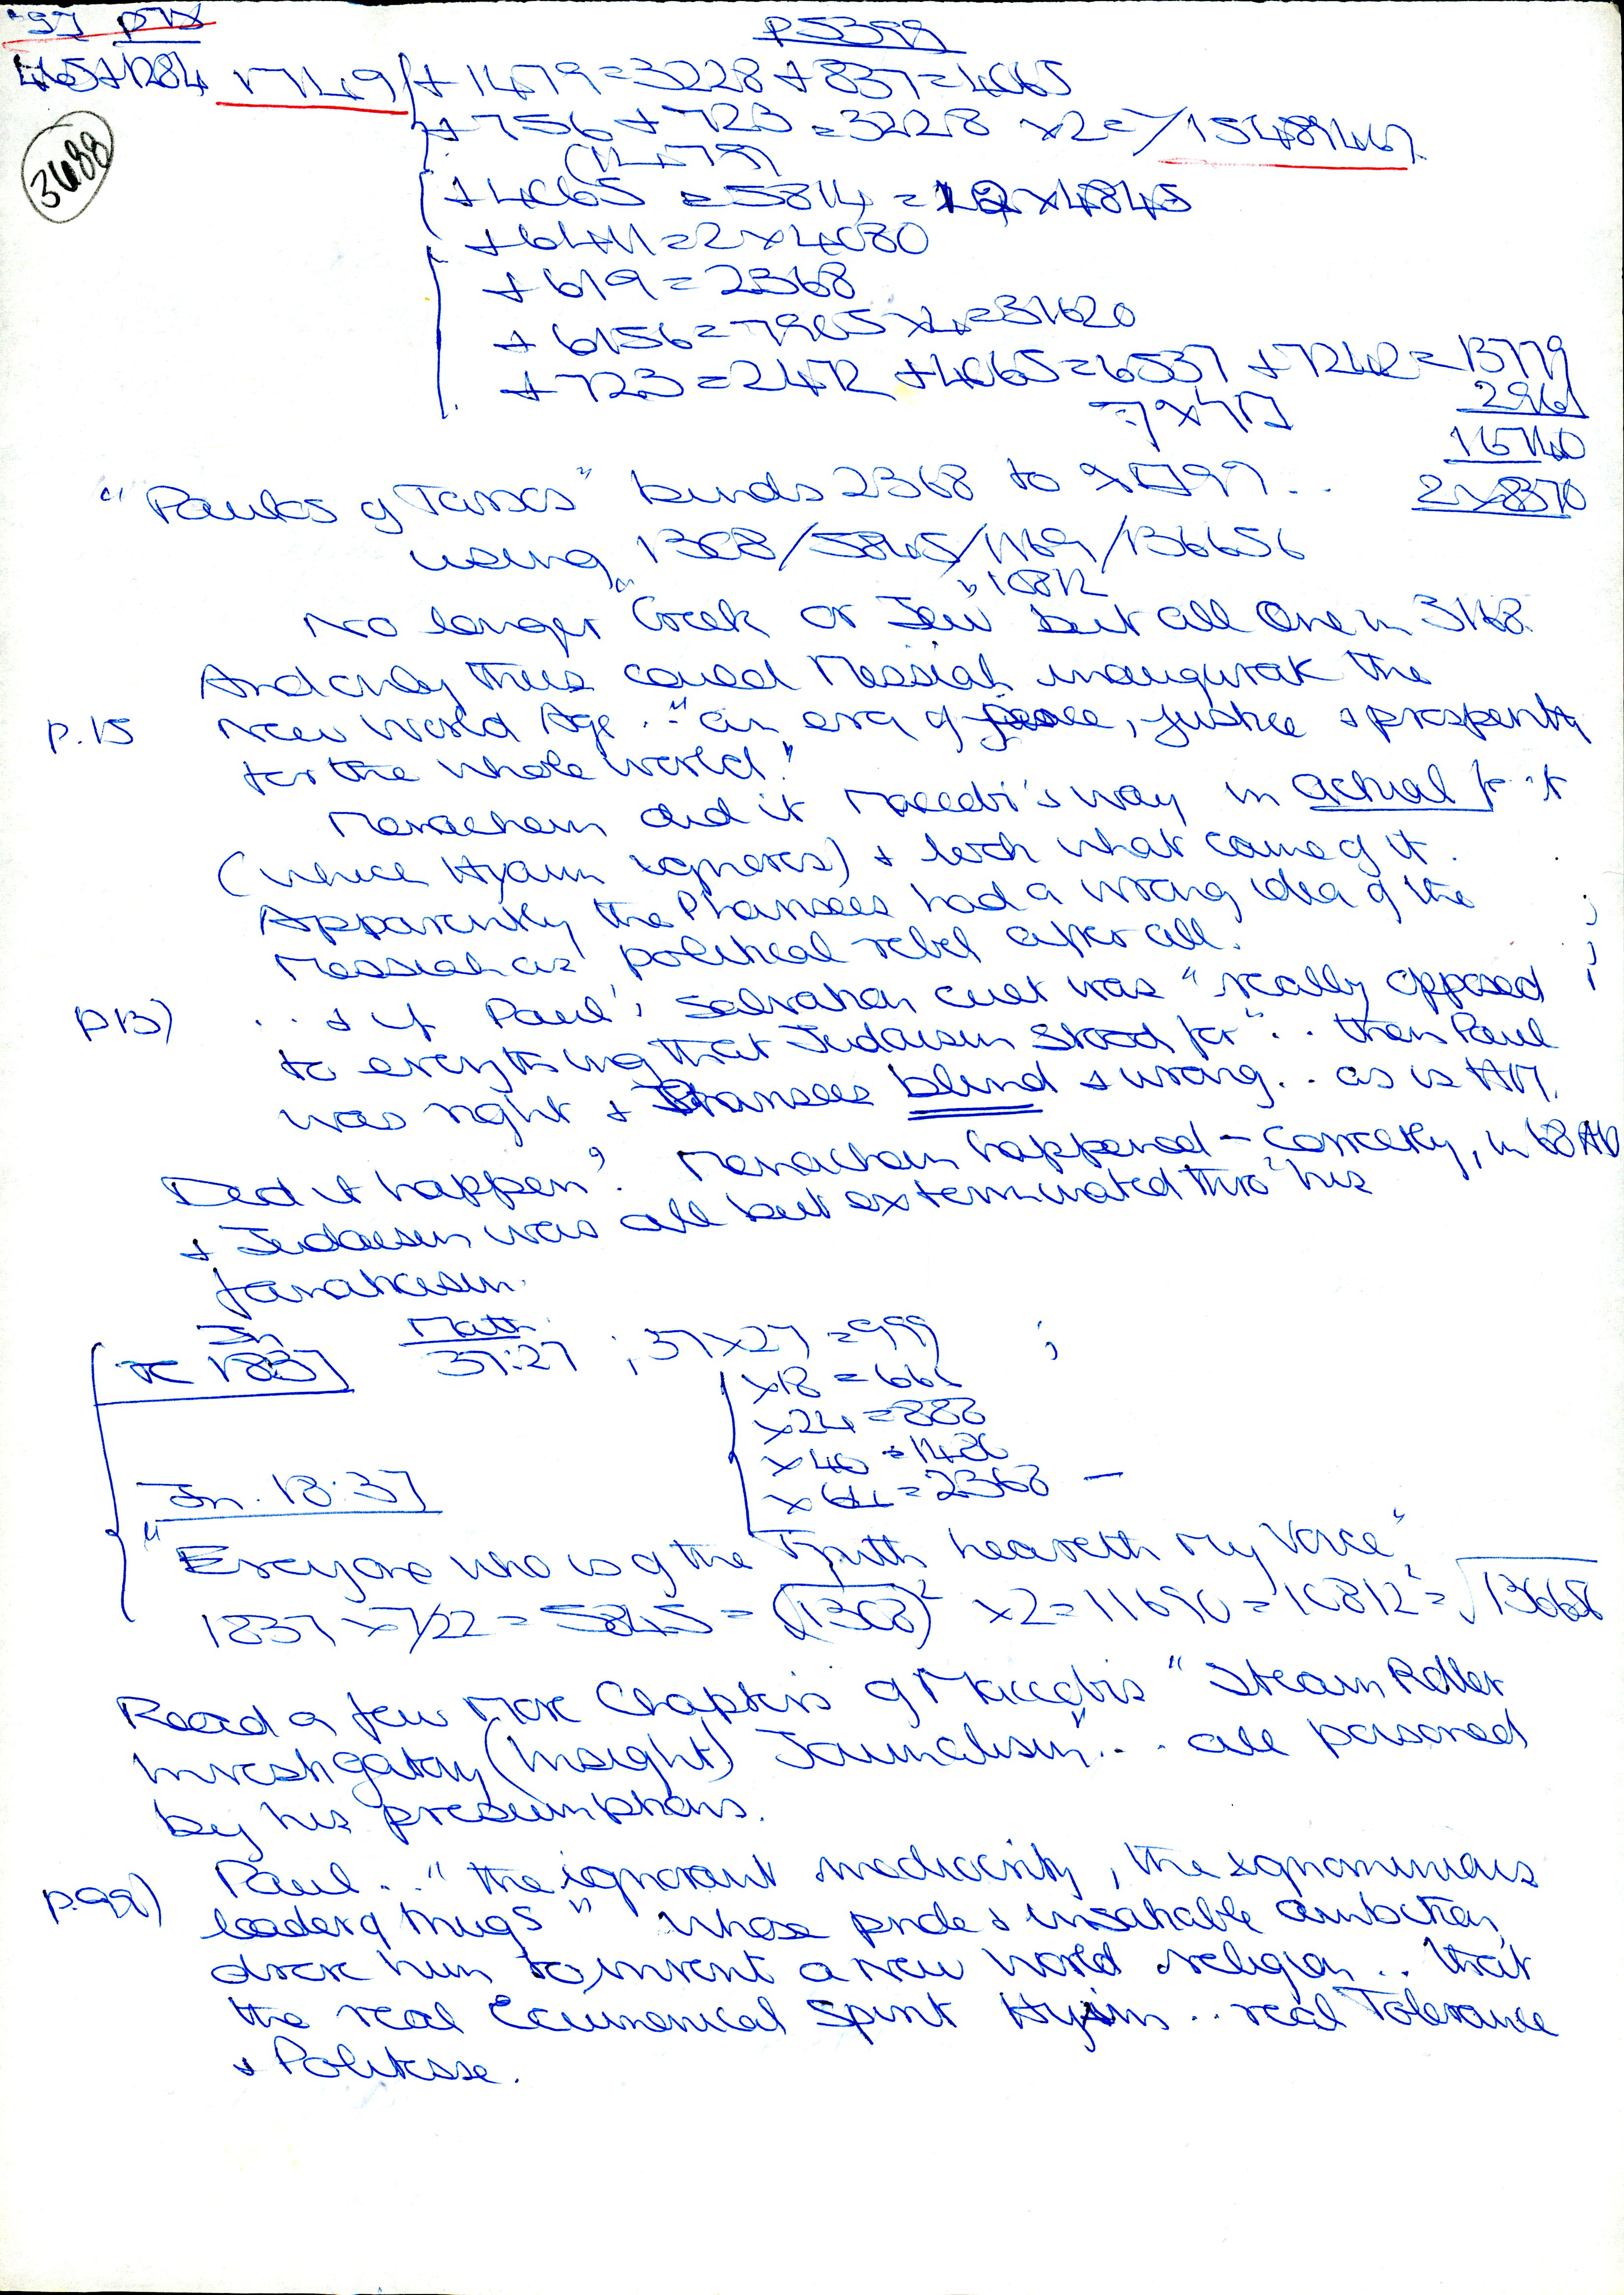 p5399
1749 + 1479 = 3228 + 837 = 4065
+ 756 + 723 = 3228 x2 =
(1479)
+ 4065 = 5814 = x 4845
+ 6411 = 2 x 4080
+ 619 = 2368
+ 6156 = 7905 x4 = 31620
+ 723 = 2472 + 4065 = 6537 + 7242 = 13779
2961
16740
2 x 8370
3688
"Paulos of Tarsos" binds 2368 to
using 1308/5845/1169/136656
10812
No longer "Greek or Jew" but all One in 3168.
And only thus could Messiah inaugurate the
p.15 New World Age .. "an era of peace, justice & prosperity
for the whole world."
Menachem did it Maccobi's way in actual
(whence Hyam ignores) & look what came of it.
Apparently the Pharisees had a wrong idea of the
Messiah as political rebel after all.
p13) .. & if Paul's salvation cult was "really opposed
to everything that Judaism stood for" .. then Paul
was right & Pharisees blind & wrong .. as is HM.
Did it happen? Menachem happened - correctly, in 68 AD
& Judaism was all but exterminated thro' his
fanaticism.
Jn Matt.
1837 37:27 ; 37x27 = 999
x18 = 666
x24 = 888
x40 = 1480
x64 = 2368 -
Jn. 18:37
"Everyone who is of the Truth heareth my Voice"
1837 x 7/22 = 5845 = (√1308)² x2 = 11690 = 10812² = √136656
Read a few more Chapters of Maccobi's "Steam Roller
Investigatory (Insight) Journalism" .. all poisoned
by his presumptions.
p.99) Paul .. "the ignorant mediocrity, the ignominious
leader of thugs" whose pride & insatiable ambition
drove him to invent a new world religion .. that
the real Ecumenical Spirit Hyam .. real Tolerance
& Politesse.